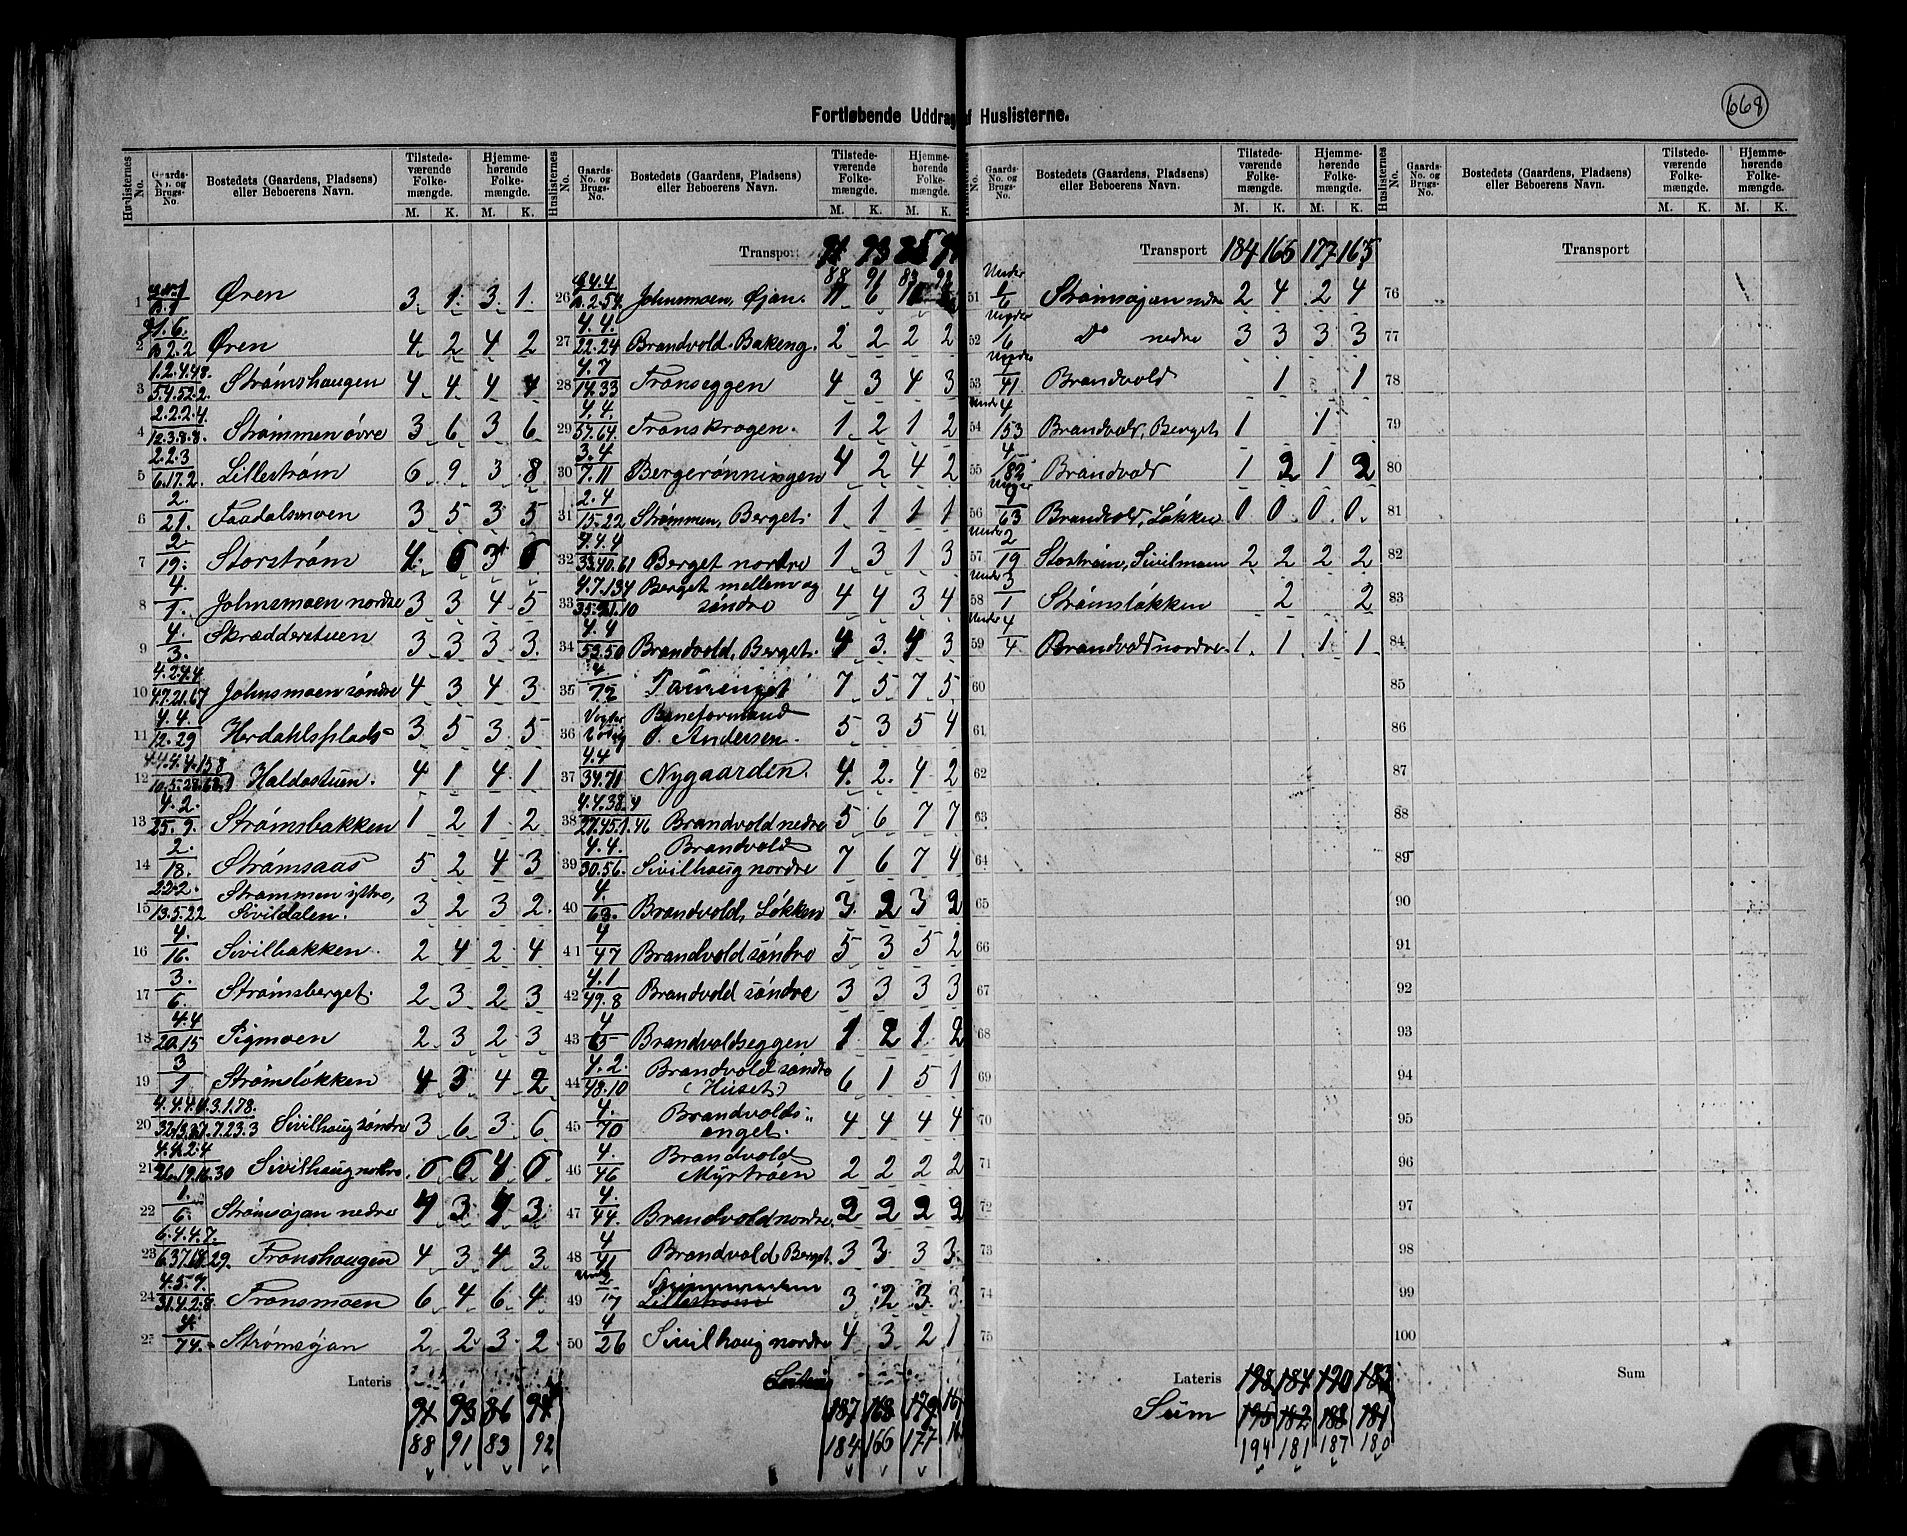 668
Fortløbende Uddrag af Huslisterne.
Huslisternes No. Gaards-No. og Brugs-No. Bostedets (Gaardens, Pladsens) eller Beboerens Navn. Tilstedeværende Folkemængde. M. K. Hjemmehørende Folkemængde. M. K.
1 Øren 3 1 3 1
2 Øren 4 2 4 2
3 Strømshaugen 4 4 4 4
4 Strømmen øvre 3 6 3 6
5 2.2.3 / 6.17.2 Lillestrøm 6 9 3 8
6 2/21 Faadalsmoen 3 5 3 5
7 2/19 Storstrøm 4 6 3 6
8 4/1 Johnsmoen nordre 3 3 4 5
9 4/3 Skrædderstuen 3 3 3 3
10 4.2.4.4 / 47.21.67 Johnsmoen søndre 4 3 4 3
11 4.4 / 12.29 Herdahlsplads 3 5 3 5
12 Haldostuen 4 1 4 1
13 4.2 / 25.9 Strømsbakken 1 2 1 2
14 2/18 Strømsaas 5 2 4 3
15 2.2.2 / 13.5.22 Strømmen yttre, Sivildalen 3 2 3 2
16 4/16 Sivilbakken 2 4 2 4
17 3/6 Strømsberget 2 3 2 3
18 4.4 / 20.15 Sigmoen 2 3 2 3
19 3/1 Strømsløkken 4 3 4 2
20 Sivilhaug søndre 3 6 3 6
21 4.4.2.4 Sivilhaug nordre 6 6 4 6
22 1/6 Strømsøjan nedre 4 3 4 3
23 6.4.4.7 Franshaugen 4 3 4 3
24 4.5.7 / 31.4.2.8 Fransmoen 6 4 6 4
25 4/74 Strømsøjan 2 2 3 2
Lateris
91 93 86 94
88 91 83 92
Transport
88 91 83 92
26 Johnsmoen, Øjan 11 6
27 4.4 / 22.24 Brandvold. Bakeng 2 2 2 2
28 4.7 / 14.33 Franseggen 4 3 4 3
29 4.4 / 57.64 Franskrogen 1 2 1 2
30 3.4 / 7.11 Bergerønningen 4 2 4 2
31 2.4 / 15.22 Strømmen, Berget 1 1 1 1
32 4.4.4 / 33.40.61 Berget nordre 1 3 1 3
33 Berget mellem og søndre 4 4 3 4
34 4.4 / 53.50 Brandvold, Berget 4 3 4 3
35 4/72 7 5 7 5
36 Baneformand Andersen 5 3 5 4
37 4.4 / 34.71 Nygaarden 4 2 4 2
38 4.4.38.4 / 27.45.1.46 Brandvold nedre 5 6 7 7
39 4.4 / 30.56 Brandvold Sivilhaug nordre 7 6 7 4
40 4/63 Brandvold, Løkken 3 2 3 2
41 4/47 Brandvold søndre 5 3 5 2
42 4.1 / 49.8 Brandvold søndre 3 3 3 3
43 4/65 Brandvoldseggen 1 2 1 2
44 4.2 / 48.10 Brandvold søndre (Huset) 6 1 5 1
45 4/70 Brandvoldsenget 4 4 4 4
46 4/46 Brandvold Myrtrøen 2 2 2 2
47 4/44 Brandvold nordre 2 2 2 2
48 4/41 Brandvold Berget 3 3 3 3
49 Under Lillestrøm 3 2 3 3
50 4/26 Sivilhaug nordre 4 3 2 1
187 168 179
184 166 177
Transport 184 166 177 165
51 Under 1/6 Strømsøjan nedre 2 4 2 4
52 Under 1/6 Do nedre 3 3 3 3
53 Under Brandvold 1 1
54 Under 4/53 Brandvold, Berget 1 1
55 4/82 Brandvold 1 2 1 2
56 Under Brandvold, Løkken 0 0 0 0
57 Under 2/19 Storstrøm, Sivilmoen 2 2 2 2
58 Under 3/1 Strømsløkken 2 2
59 Under 4/4 Brandvold nordre 1 1 1 1
60
61
62
63
64
65
66
67
68
69
70
71
72
73
74
75
Lateris 198 184 190 183
Sum 195 182 188 181
194 181 187 180
Transport
76
77
78
79
80
81
82
83
84
85
86
87
88
89
90
91
92
93
94
95
96
97
98
99
100
Sum